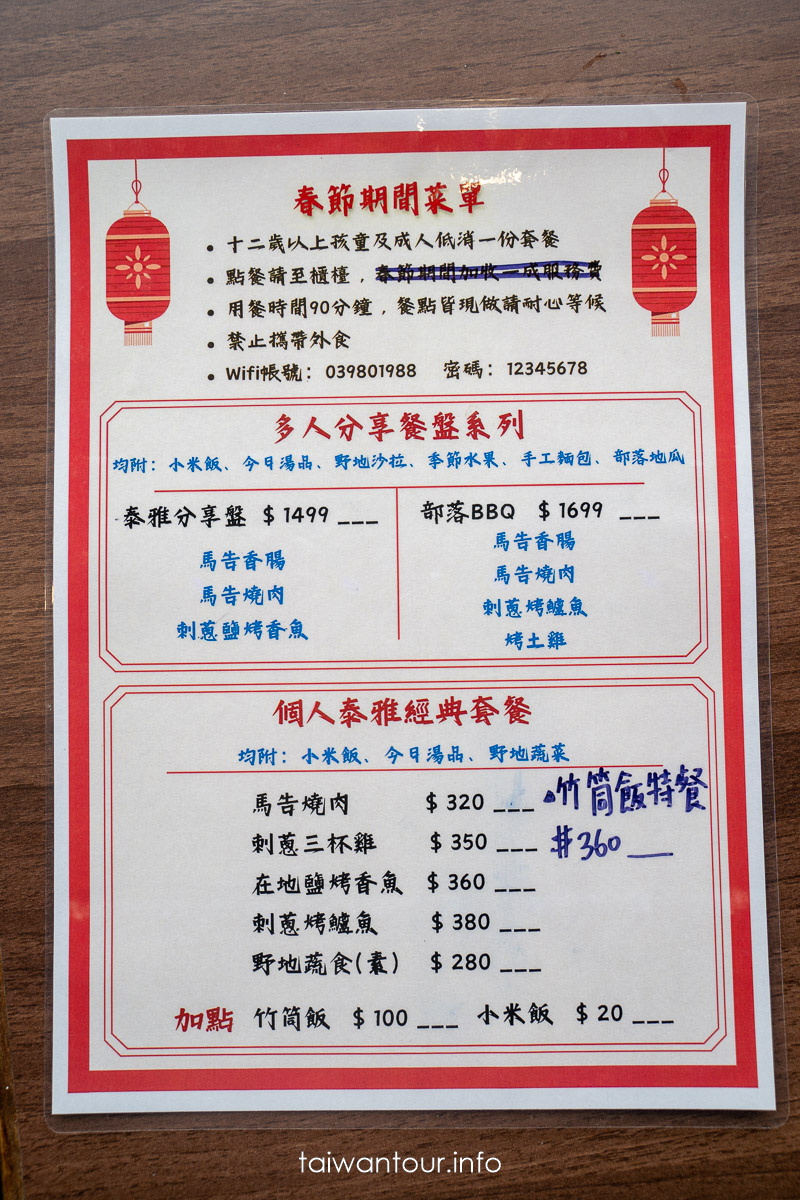 春節期間菜單
• 十二歲以上孩童及成人低消一份套餐
• 點餐請至櫃檯，春節期間加收一成服務費
• 用餐時間90分鐘，餐點皆現做請耐心等候
• 禁止攜帶外食
• Wifi帳號： 039801988 密碼： 12345678
多人分享餐盤系列
均附：小米飯、今日湯品、野地沙拉、季節水果、手工麵包、部落地瓜
泰雅分享盤 $ 1499 ___
馬告香腸
馬告燒肉
刺蔥鹽烤香魚
部落BBQ $ 1699 ___
馬告香腸
馬告燒肉
刺蔥烤鱸魚
烤土雞
個人泰雅經典套餐
均附：小米飯、今日湯品、野地蔬菜
馬告燒肉 $ 320 ___
刺蔥三杯雞 $ 350 ___
在地鹽烤香魚 $ 360 ___
刺蔥烤鱸魚 $ 380 ___
野地蔬食(素) $ 280 ___
竹筒飯特餐
$360 ___
加點 竹筒飯 $ 100 ___ 小米飯 $ 20 ___
taiwantour.info